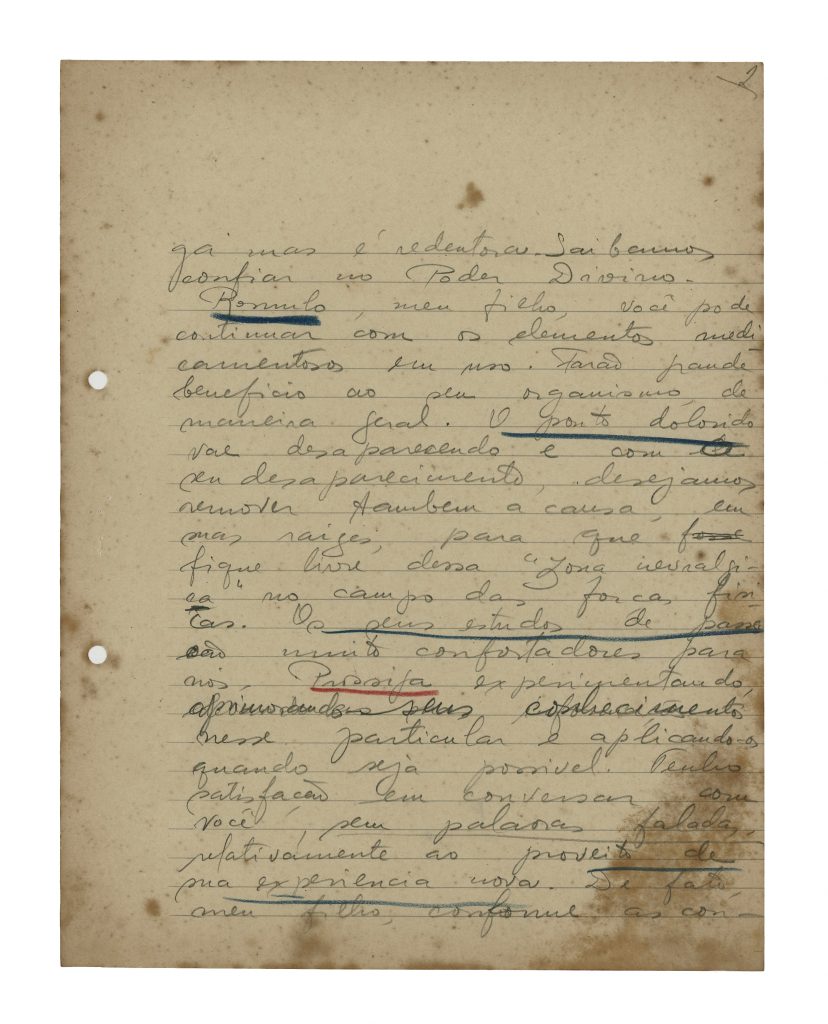 2
ga mas é redentora. Saibamos
confiar no Poder Divino.
Romulo, meu filho, você pode
continuar com os elementos medi
camentosos em uso. Farão grande
beneficio ao seu organismo, de
maneira geral. O ponto dolorido
vae desaparecendo e com
seu desaparecimento, desejamos
remover tambem a causa, em
suas raizes, para que fosse
fique livre dessa "Zona nevralgi-
ca" no campo das forcas fisi
cas. Os seus estudos de passe
são muito confortadores para
nós. Prossiga experimentando,
aprimorando seus conhecimentos
nesse particular e aplicando-os
quando seja possivel. Tenho
satisfacão em conversar com
você, sem palavras faladas,
relativamente ao proveito de
sua experiencia nova. De fato,
meu filho, conforme as con-